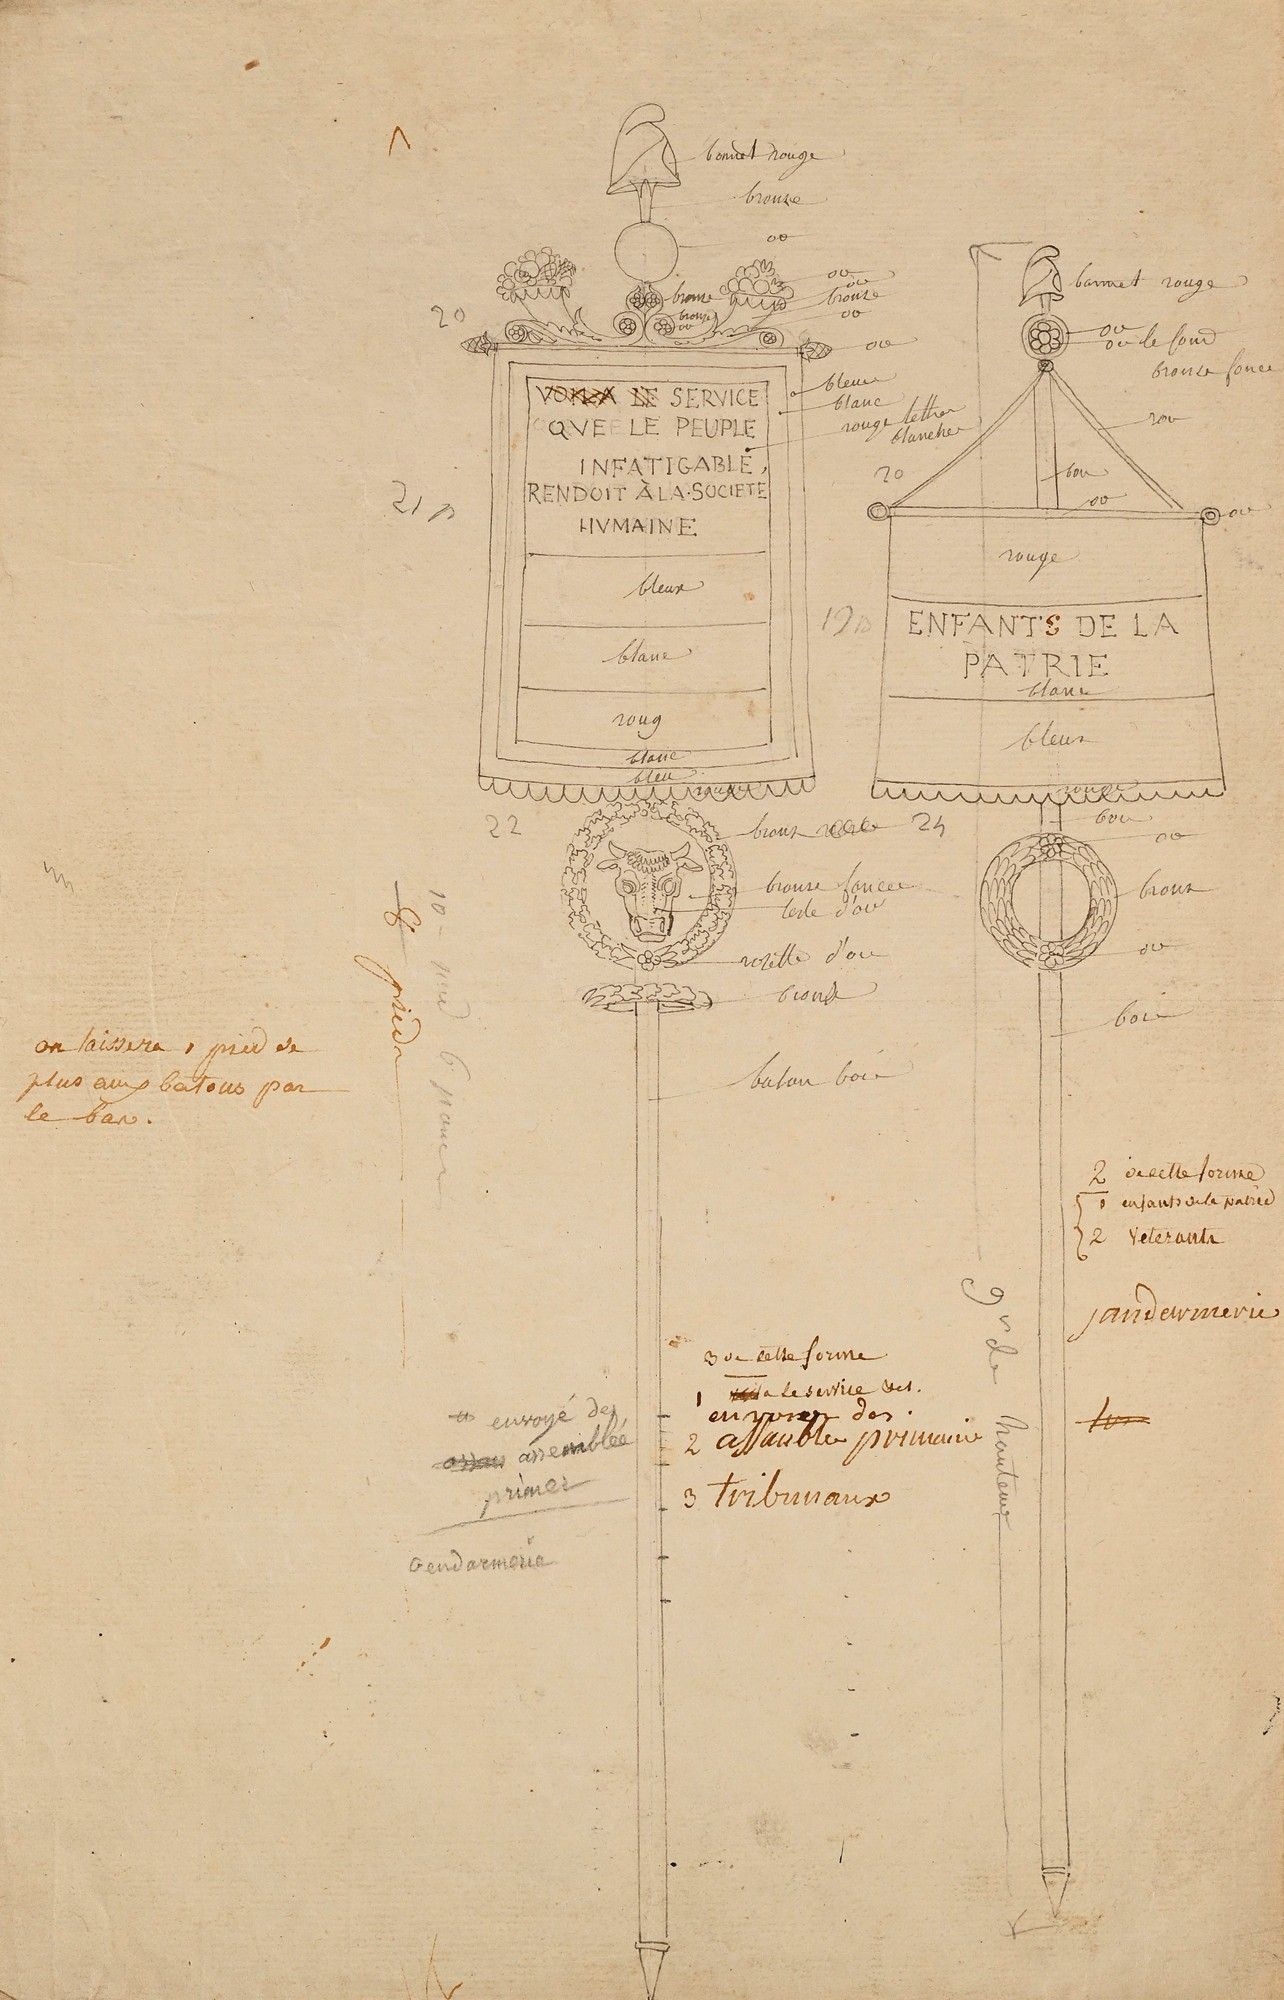 bonnet rouge
bronze
or
or
or
bronze
or
bronze
bronze
or
20
or
bleue
blanc
rouge lettre
blanche
VOILA LE SERVICE
QUE LE PEUPLE
INFATIGABLE,
RENDOIT À LA SOCIETE
HVMAINE
21 p
bleux
blanc
roug
blanc
bleu
rouge
22
bronz
bronze foncee
teste d'or
rozette d'or
bronze
baton boi
bonnet rouge
or
or le fond
bronze foncé
20
boi
or
or
rouge
19 p
ENFANTS DE LA
PATRIE
blanc
bleux
rouge
24
boi
or
bronz
or
boi
8 pieds
10 pied 6 pouces
on laissera 1 pied de
plus aux batons par
le bas.
2 de cette forme
1 enfants de la patrie
2 veterants
jandarmerie
9 pds de hauteur
3 de cette forme
1 le service des.
envoyer des.
2 assamble primaire
3 tribunaux
envoyé des
assemblée
primer
Gendarmerie